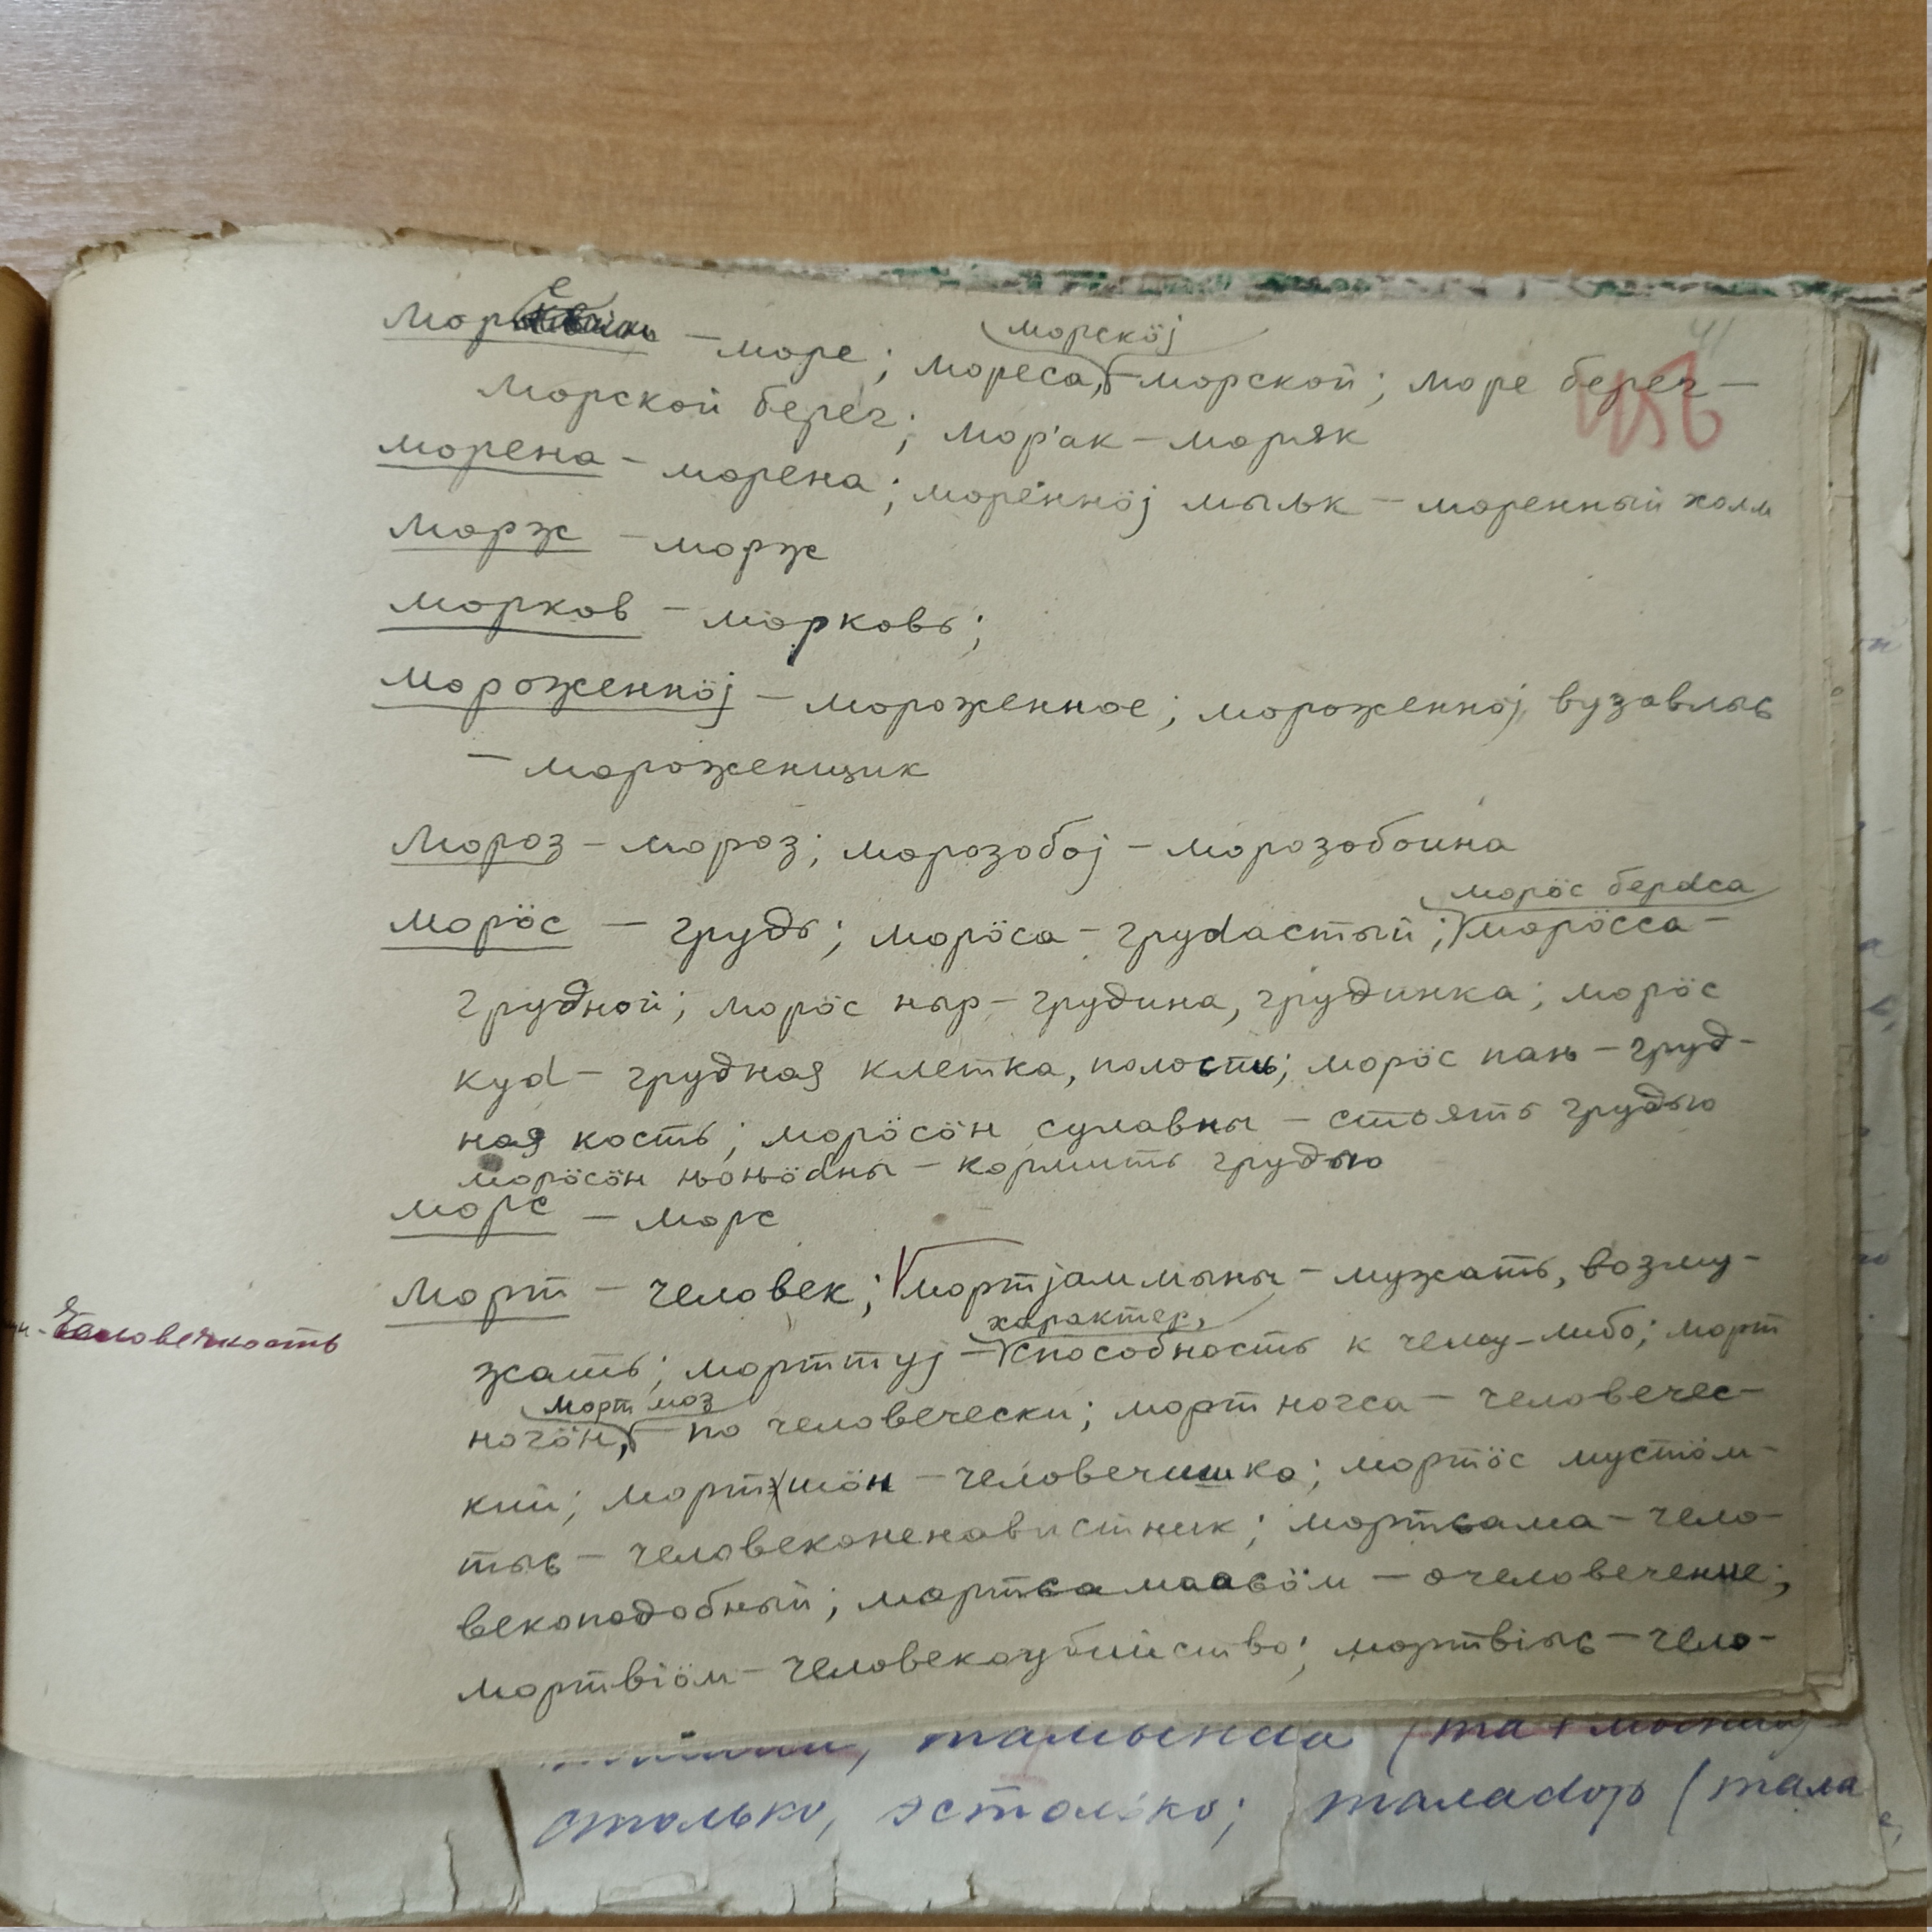 41
морскöj
море — море; мореса, — морской; море берег —
456
морской берег; мор'ак — моряк
морена — морена; мореннöj мыльк — моренный холм
морж — морж
морков — морковь;
мороженнöj — мороженное; мороженнöj вузавлыс
— мороженщик
Мороз — мороз; морозобоj — морозобоина
морöс берdса
морöс — грудь; морöса — груdастый; морöсса —
грудной; морöс ныр — грудина, грудинка; морöс
куd — грудная клетка, полость; морöс пань — груд-
ная кость; морöсöн сулавны — стоять грудью
морöсöн ньоньödны — кормить грудью
морс — морс
морт — человек; мортjаммыны — мужать, возму-
характер,
Человечность
жать; морттуj — способность к чему-либо; морт
морт моз
ногöн, — по человечески; морт ногса — человечес-
кий; мортшöн — человечишко; мортöс мустöм-
тыс — человеконенавистник; мортсама — чело-
векоподобный; мортсамаасöм — очеловечение;
мортвiöм — человекоубийство; мортвiыс — чело-
тамында (та + мында)
столько, эстолько; талаdор (тала